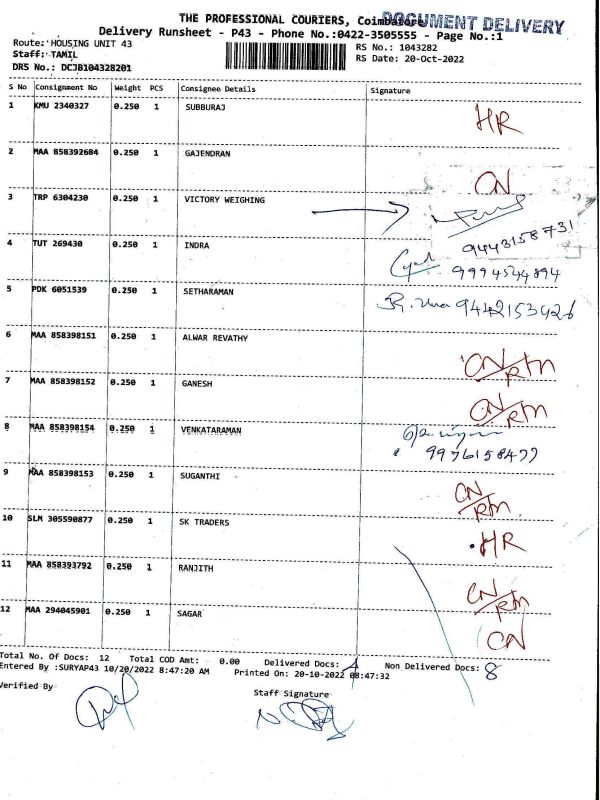 THE PROFESSIONAL COURIERS, Coimbatore
DOCUMENT DELIVERY
Delivery Runsheet - P43 - Phone No.:0422-3505555 - Page No.:1
Route: HOUSING UNIT 43
RS No.: 1043282
Staff: TAMIL
RS Date: 20-Oct-2022
DRS No.: DCJB104328201
S No Consignment No Weight PCS Consignee Details Signature
1 KMU 2340327 0.250 1 SUBBURAJ HR
2 MAA 858392684 0.250 1 GAJENDRAN CN
3 TRP 6304230 0.250 1 VICTORY WEIGHING 9443158731
4 TUT 269430 0.250 1 INDRA 9994544894
5 PDK 6051539 0.250 1 SETHARAMAN R. Uma 9442153426
6 MAA 858398151 0.250 1 ALWAR REVATHY CN/RTN
7 MAA 858398152 0.250 1 GANESH CN/RTN
8 MAA 858398154 0.250 1 VENKATARAMAN 9976158477
9 MAA 858398153 0.250 1 SUGANTHI CN/RTN
10 SLM 305590877 0.250 1 SK TRADERS HR
11 MAA 858393792 0.250 1 RANJITH CN/RTN
12 MAA 294045901 0.250 1 SAGAR CN
Total No. Of Docs: 12 Total COD Amt: 0.00 Delivered Docs: 4 Non Delivered Docs: 8
Entered By :SURYAP43 10/20/2022 8:47:20 AM Printed On: 20-10-2022 08:47:32
Verified By
Staff Signature